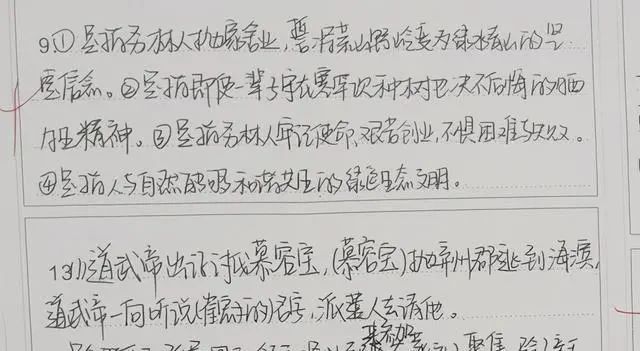 9.①是指务林人抛家舍业,誓将荒山野岭变为绿水青山的坚
定信念。②是指即使一辈子守在塞罕坝种树也决不后悔的牺
牲精神。③是指务林人牢记使命、艰苦创业,不惧困难与失败。
④是指人与自然能够和谐共生的绿色生态文明。
13.(1)道武帝出征讨伐慕容宝,(慕容宝)抛弃州郡逃到海滨,
道武帝一向听说(崔宏的)名声,派遣人去请他。
聚集